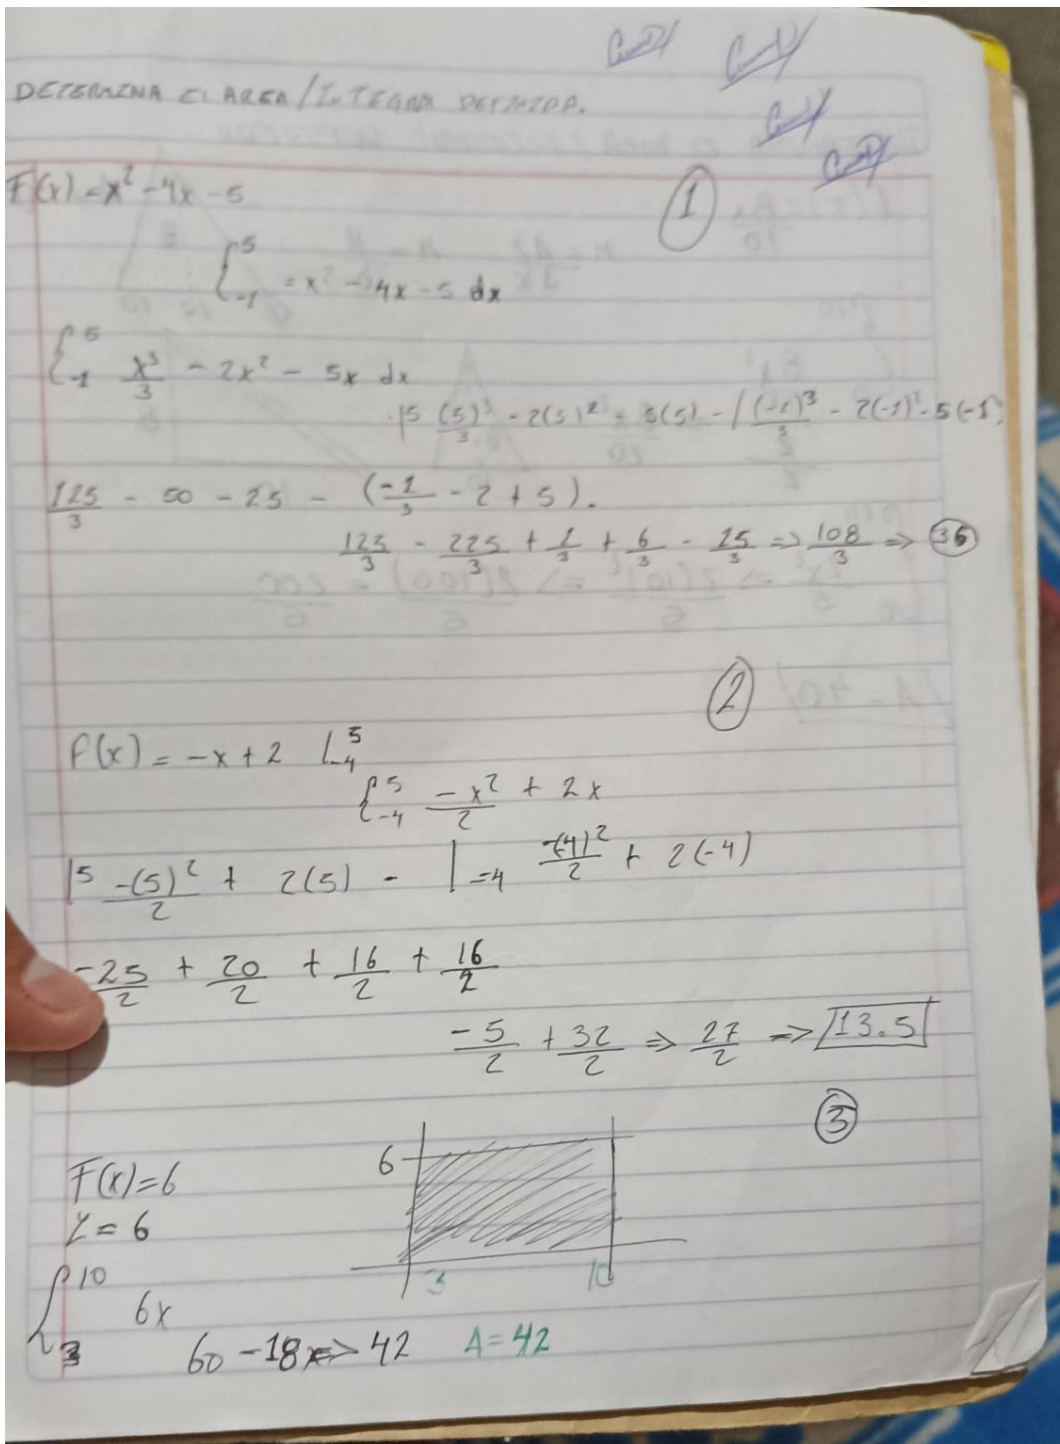 DETERMINA El AREA/INTEGRA DEFINIDA.
F(x) = x² - 4x - 5
1
∫₋₁⁵ = x² - 4x - 5 dx
∫₋₁⁵ x³/3 - 2x² - 5x dx
|5 (5)³/3 - 2(5)² - 5(5) - |(-1)³/3 - 2(-1)² - 5(-1)
125/3 - 50 - 25 - (-1/3 - 2 + 5).
125/3 - 225/3 + 1/3 + 6/3 - 15/3 => 108/3 => 36
2
F(x) = -x + 2 |₋₄⁵
∫₋₄⁵ -x²/2 + 2x
|5 -(5)²/2 + 2(5) - |₋₄ -(4)²/2 + 2(-4)
-25/2 + 20/2 + 16/2 + 16/2
-5/2 + 32/2 => 27/2 => 13.5
3
F(x) = 6
6
Y = 6
3 10
∫₃¹⁰ 6x
60 - 18 => 42 A = 42